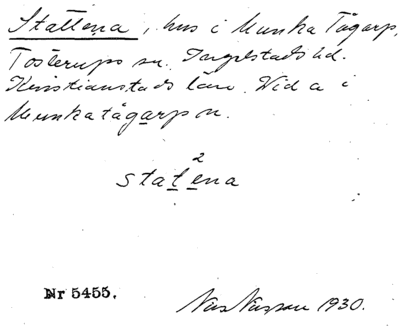 Stattena, hus i Munka Tågarp,
Tosterups sn. Ingelstads hd.
Kristianstads län. Vid a i
Munkatågarp sn.
2
statena
Nr 5455.
1930.